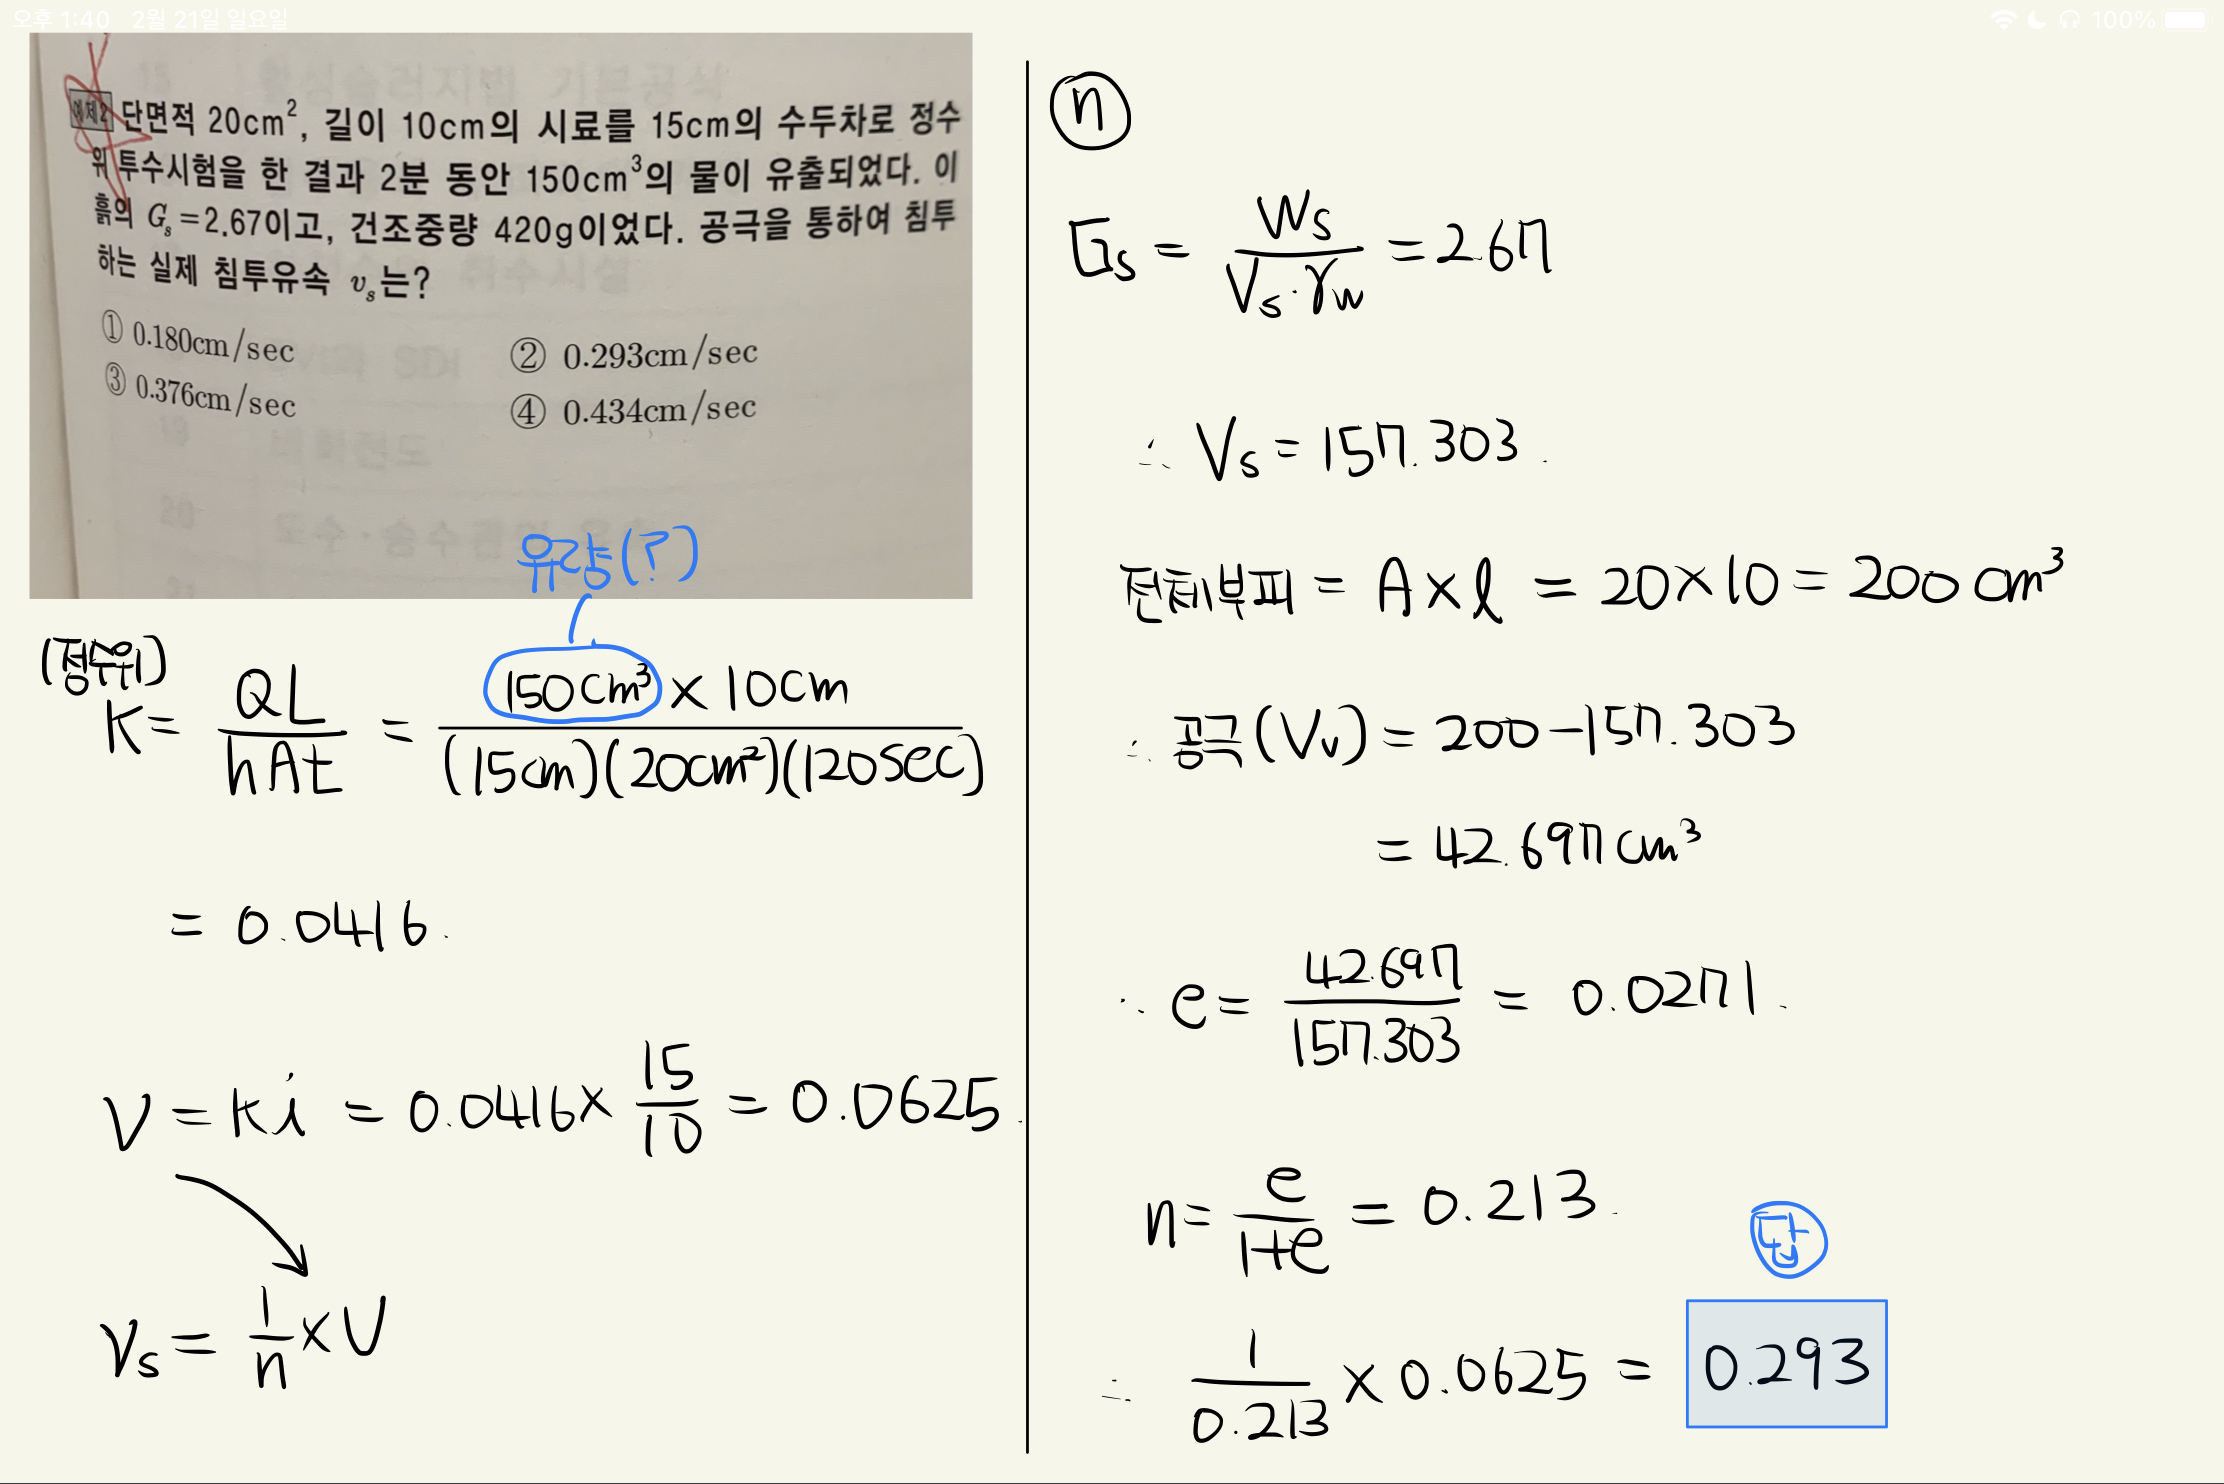 오후 1:40 2월 21일 일요일
100%
예제2 단면적 20cm², 길이 10cm의 시료를 15cm의 수두차로 정수
위 투수시험을 한 결과 2분 동안 150cm³의 물이 유출되었다. 이
흙의 Gₛ=2.67이고, 건조중량 420g이었다. 공극을 통하여 침투
하는 실제 침투유속 vₛ는?
① 0.180cm/sec ② 0.293cm/sec
③ 0.376cm/sec ④ 0.434cm/sec
유량(?)
(정수위)
K = QL / hAt = 150cm³ × 10cm / (15cm)(20cm²)(120sec)
= 0.0416.
V = Ki = 0.0416 × 15/10 = 0.0625.
Vs = 1/n × V
n
Gs = Ws / Vs·γw = 2.67
∴ Vs = 157.303.
전체부피 = A × l = 20×10 = 200cm³
∴ 공극(Vv) = 200-157.303
= 42.697cm³
∴ e = 42.697 / 157.303 = 0.0271.
n = e / 1+e = 0.213.
답
∴ 1 / 0.213 × 0.0625 = 0.293